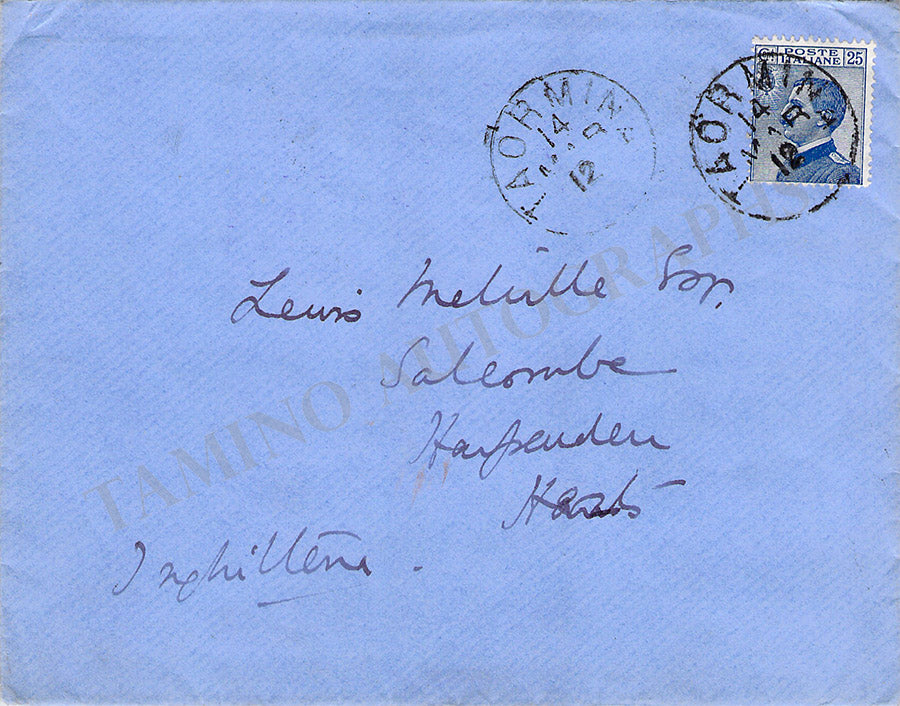 POSTE
ITALIANE 25
TAORMINA
14
MAR
12
TAORMINA
14
MAR
12
Lewis Melville Esqr.
Salcombe
Harpenden
Herts
Inghilterra.
TAMINO AUTOGRAPHS